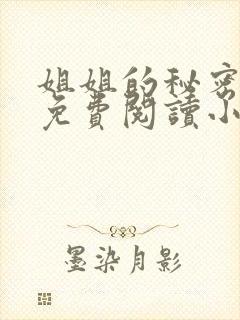 姐姐的秘密
免費閱讀小
墨染月影